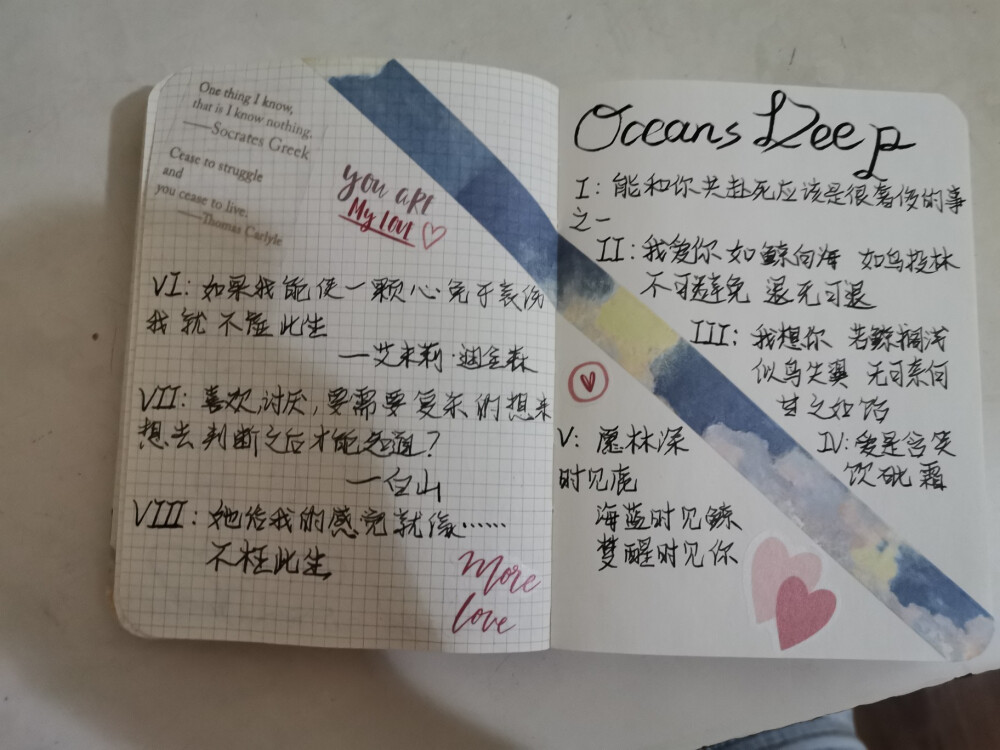 One thing I know,
that is I know nothing.
——Socrates Greek
Cease to struggle
and
you cease to live.
——Thomas Carlyle
you are
My love
VI：如果我能使一颗心免于哀伤
我就不虚此生
—艾米莉·迪金森
VII：喜欢,讨厌,要需要复杂的想来
想去判断之后才能知道？
—白山
VIII：她给我的感觉就像……
不枉此生
More
love
Oceans Deep
I：能和你共赴死应该是很奢侈的事
之一
II：我爱你 如鲸向海 如鸟投林
不可避免 退无可退
III：我想你 若鲸搁浅
似鸟失翼 无可奈何
甘之如饴
IV：爱是含笑
饮砒霜
V：愿林深
时见鹿
海蓝时见鲸
梦醒时见你